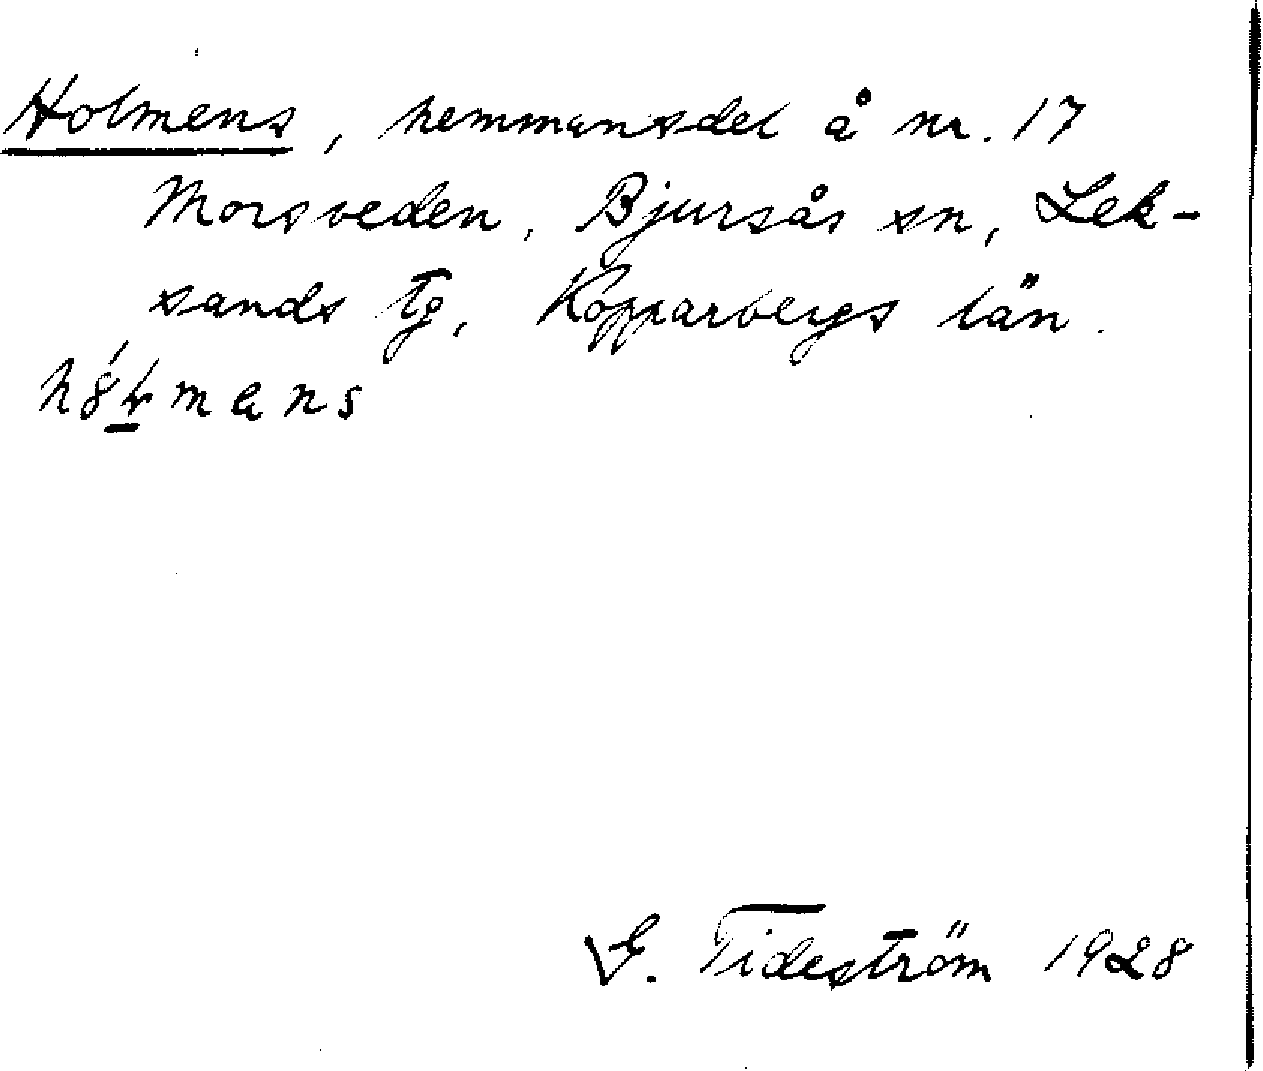 Holmens, hemmansdel å nr. 17
Morsveden, Bjursås sn, Lek-
sands tg, Kopparbergs län.
G. Tideström 1928